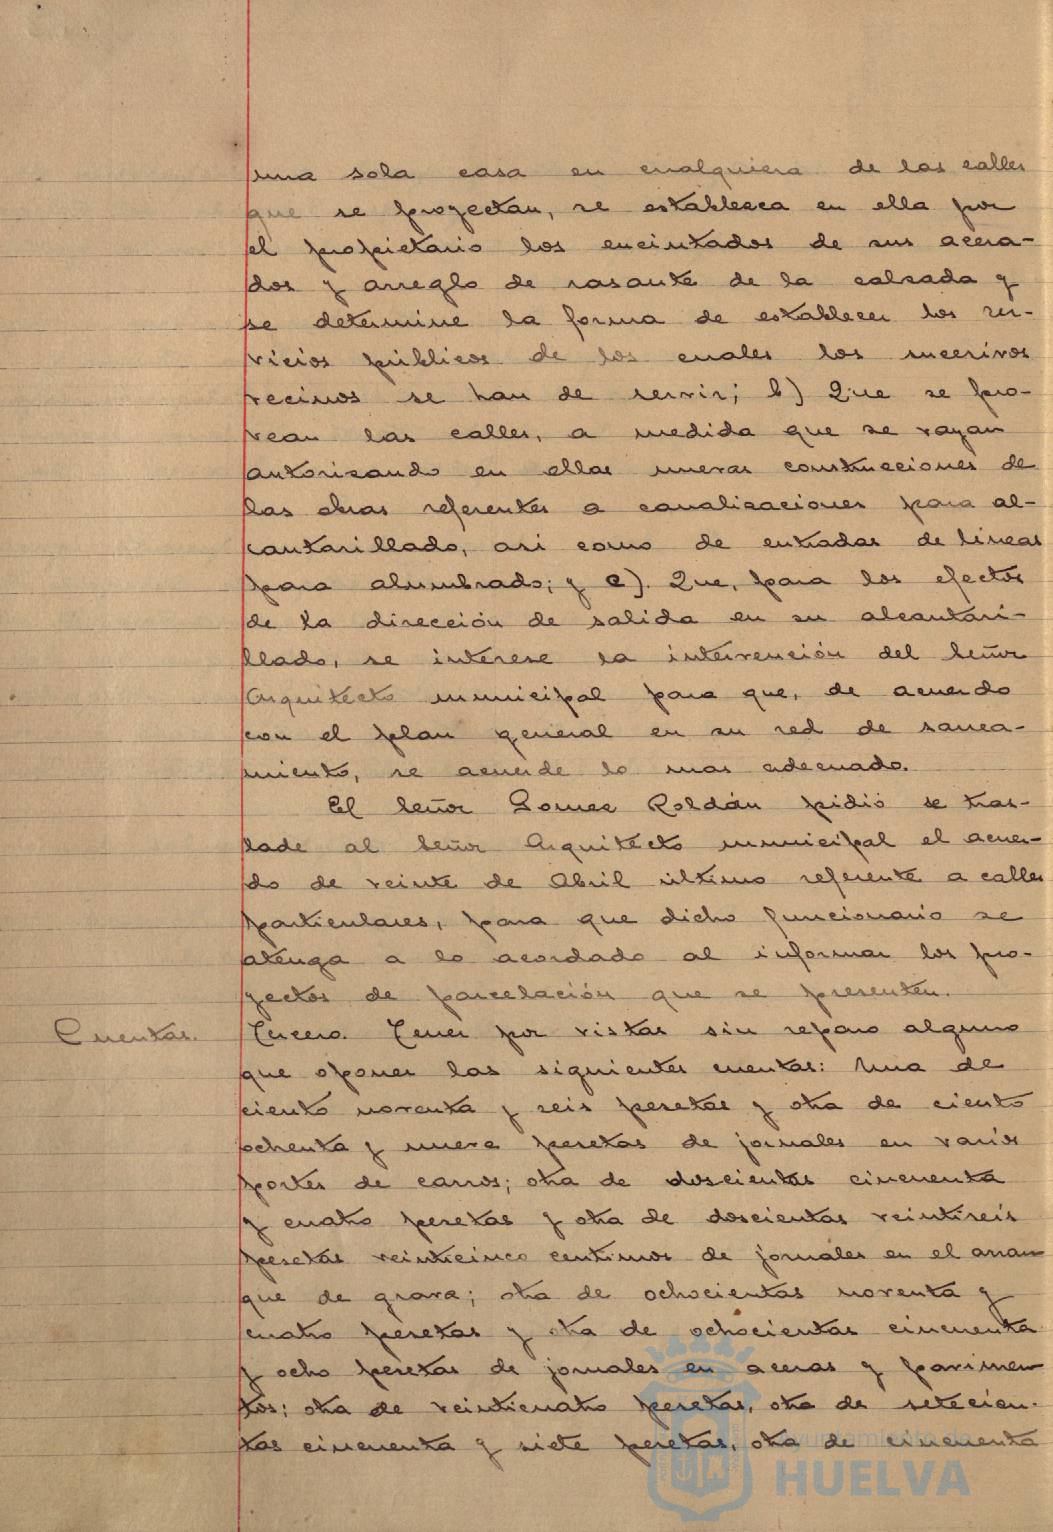 una sola casa en cualquiera de las calles
que se proyectan, se establezca en ella por
el propietario los encintados de sus acera-
dos y arreglo de rasante de la calzada y
se determine la forma de establecer los ser-
vicios públicos de los cuales los sucesivos
vecinos se han de servir; b) Que se pro-
vean las calles, a medida que se vayan
autorizando en ellas nuevas construcciones de
las obras referentes a canalizaciones para al-
cantarillado, asi como de entradas de lineas
para alumbrado; y c). Que, para los efectos
de la dirección de salida en su alcantari-
llado, se interese la intervención del Señor
Arquitecto municipal para que, de acuerdo
con el plan general en su red de sanea-
miento, se acuerde lo mas adecuado.
El Señor Gomez Roldán pidió se tras-
lade al Señor Arquitecto municipal el acuer-
do de veinte de Abril último referente a calles
particulares, para que dicho funcionario se
atenga a lo acordado al informar los pro-
yectos de parcelación que se presenten.
Cuentas. Tercero. Tener por vistas sin reparo alguno
que oponer las siguientes cuentas: Una de
ciento noventa y seis pesetas y otra de ciento
ochenta y nueve pesetas de jornales en varios
portes de carros; otra de doscientas cincuenta
y cuatro pesetas y otra de doscientas veintiseis
pesetas veinticinco centimos de jornales en el arran
que de grava; otra de ochocientas noventa y
cuatro pesetas y otra de ochocientas cincuenta
y ocho pesetas de jornales en aceras y pavimen
tos; otra de veinticuatro pesetas, otra de setecien-
tas cincuenta y siete pesetas, otra de cincuenta
Ayuntamiento de
HUELVA